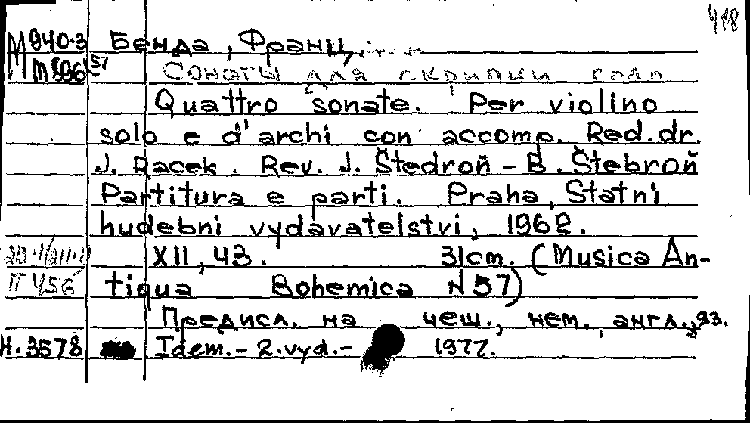 418
М 940-3 Бенда, Франц
m 596 57 Сонаты для скрипки соло
Quattro sonate. Per violino
solo e d'archi con accomp. Red. dr.
J. Racek. Rev. J. Štedroň - B. Štebroň
Partitura e parti. Praha, Statni
hudebni vydavatelstvi, 1962.
XII, 43. 31cm. (Musica An-
П 456 tiqua Bohemica N 57)
Предисл. на чеш., нем., англ.,
Н. 3578 Idem. - 2. vyd. - 1977.